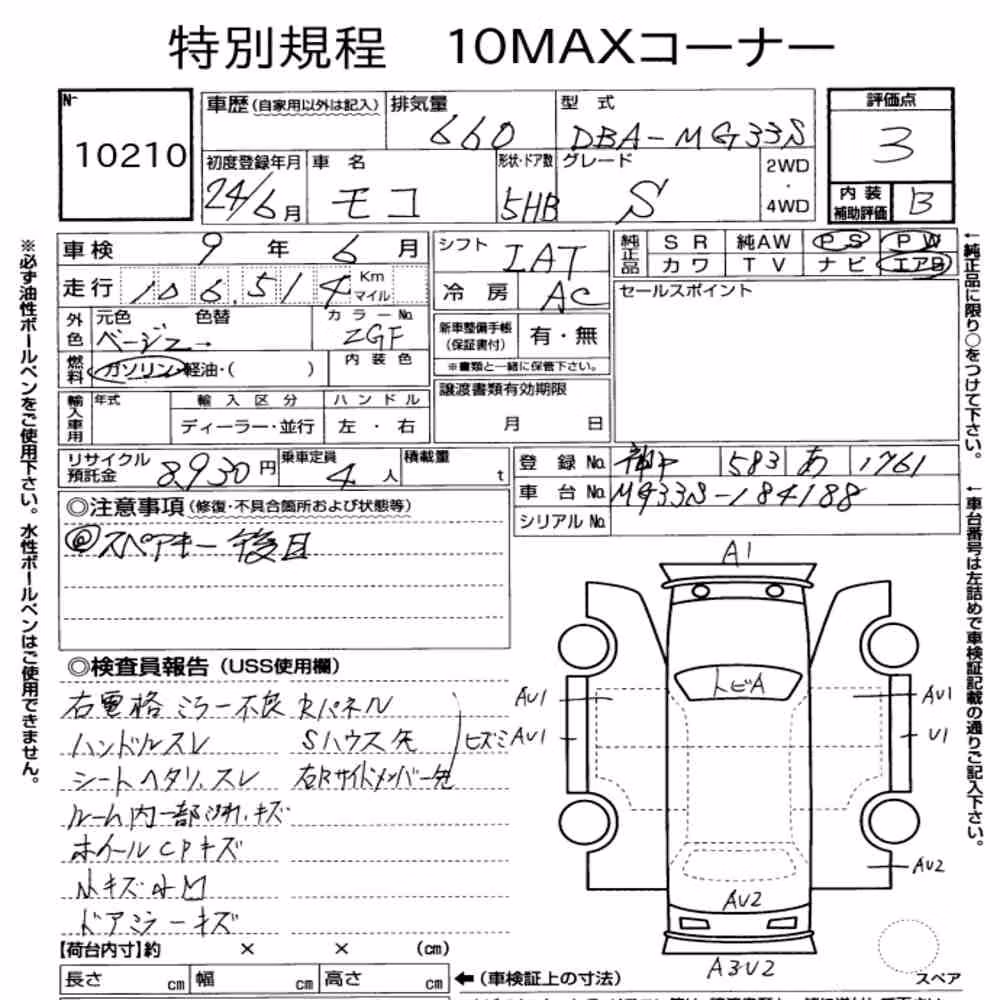 特別規程 10MAXコーナー
№ 10210
車歴(自家用以外は記入) 排気量 660 型式 DBA-MG33S
評価点 3
初度登録年月 24/6月 車名 モコ 形状・ドア数 5HB グレード S 2WD・4WD
内装補助評価 B
車検 9年6月
シフト IAT
純正品 SR 純AW PS PW
カワ TV ナビ エアB
走行 106,514 Km マイル
冷房 AC
セールスポイント
外色 元色 ベージュ 色替 → カラーNo. ZGF
新車整備手帳(保証書付) 有・無
※書類と一緒に保管下さい。
燃料 ガソリン・軽油・( ) 内装色
輸入車用 年式 輸入区分 ディーラー・並行 ハンドル 左・右
譲渡書類有効期限 月 日
リサイクル預託金 8,930円 乗車定員 4人 積載量 t
登録No. 583 あ 1761
車台No. MG33S-184188
シリアルNo.
◎注意事項(修復・不具合箇所および状態等)
@スペアキー後日
◎検査員報告(USS使用欄)
右電格ミラー不良 Rパネル
ハンドルスレ Sハウス先 ヒズミ
シートヘタリ、スレ 右Rサイドメンバー先
ルーム内一部汚れ、キズ
ホイールCPキズ
小キズ小凹
ドアミラーキズ
A1
トビA
AU1
AU1
AU1
U1
AU2
AU2
A3U2
スペア
【荷台内寸】約 × × (cm)
長さ cm 幅 cm 高さ cm ←(車検証上の寸法)
※必ず油性ボールペンをご使用下さい。水性ボールペンはご使用できません。
←純正品に限り○をつけて下さい。
←車台番号は左詰めで車検証記載の通りご記入下さい。